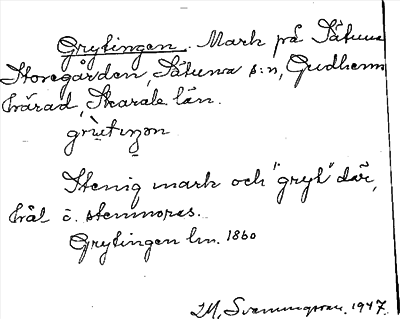 Grytingen. Mark på Sätuna
Storegården, Sätuna s:n, Gudhems
härad, Skarab. län.
Stenig mark och "gryt" där,
hål i stenrös.
Grytingen lm. 1860
Svenningsson. 1947.